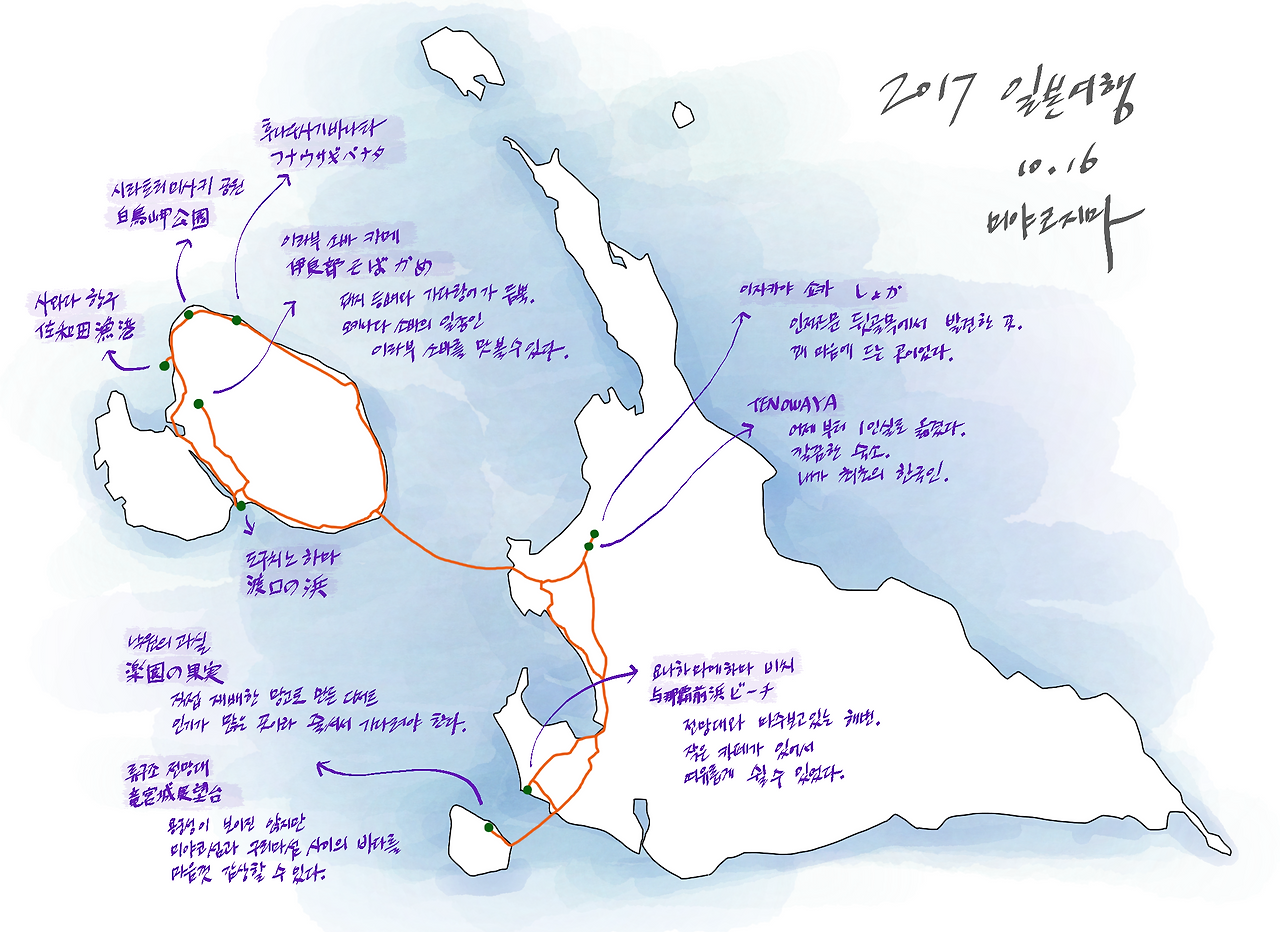 2017 일본여행
10.16
미야코지마
후나우사기바나타
フナウサギバナタ
시라토리미사키 공원
白鳥岬公園
이라부 소바 카메
伊良部そばかめ
돼지 등뼈와 가다랑어가 듬뿍.
오키나와 소바의 일종인
이라부 소바를 맛볼 수 있다.
사와다 항구
佐和田漁港
이자카야 쇼카 しょか
인적드문 뒷골목에서 발견한 곳.
꽤 마음에 드는 곳이었다.
TENOWAYA
어제부터 1인실로 옮겼다.
깔끔한 숙소.
내가 최초의 한국인.
도구치노 하마
渡口の浜
낙원의 과실
楽園の果実
직접 재배한 망고로 만든 디저트
인기가 많은 곳이라 줄서서 기다려야 한다.
요나하 마에하마 비치
与那覇前浜ビーチ
전망대와 마주보고있는 해변.
작은 카페가 있어서
여유롭게 쉴 수 있었다.
류구조 전망대
竜宮城展望台
용궁성이 보이진 않지만
미야코섬과 구리마섬 사이의 바다를
마음껏 감상할 수 있다.